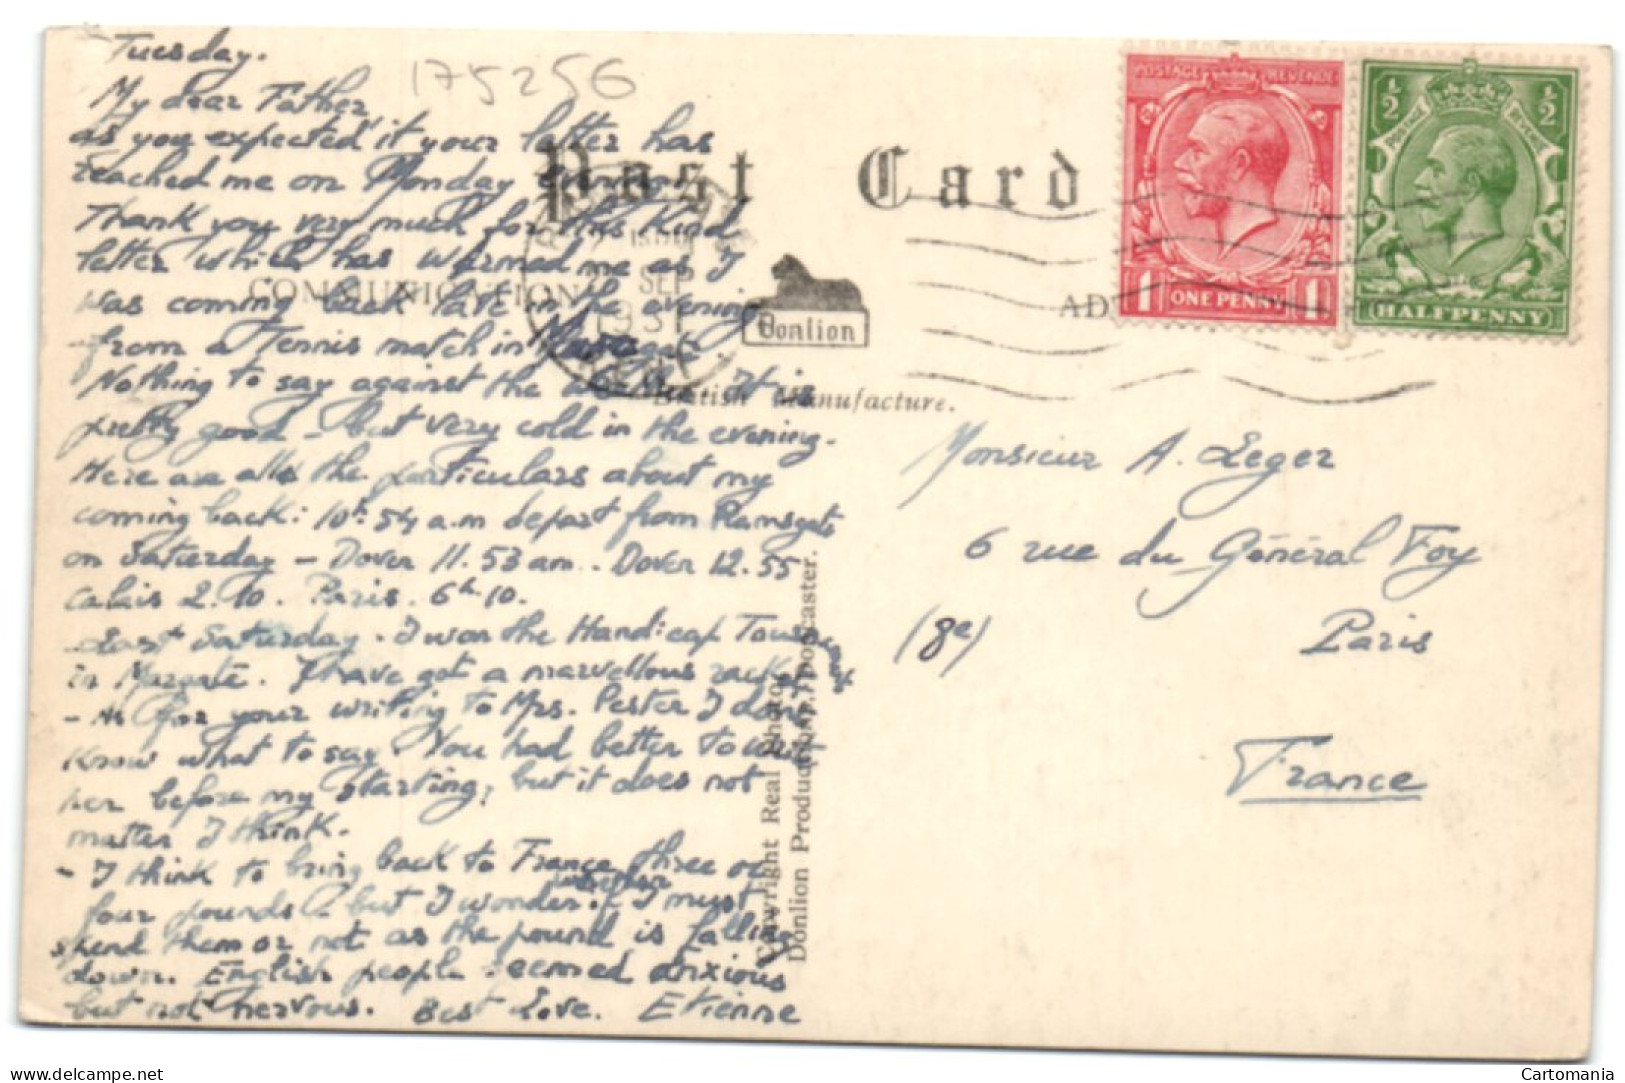 Tuesday.
175256
My dear Father,
as you expected it your letter has
reached me on Monday
Thank you very much for this kind
letter which has warmed me as I
was coming back late in the evening
from a Tennis match in Margate
Nothing to say against the It is
pretty good - but very cold in the evening.
Here are alls the particulars about my
coming back: 10h 54 a.m depart from Ramsgate
on Saturday - Dover 11.53 am.. Dover 12.55
Calais 2.10. Paris. 6h10.
Last Saturday. I won the Handicap Tournament
in Margate. I have got a marvellous racket
- As for your writing to Mrs. Pester I dont
know what to say. You had better to wait
her before my starting, but it does not
matter I think.
- I think to bring back to France three or
four pounds - but I wonder if I must
spend them or not as the pound is falling
down. English people seemed anxious
but not nervous. Best Love. Etienne
Post Card
COMMUNICATION
AD
SEP
1931
Donlion
British Manufacture.
Copyright Real Photo
Donlion Productions, Doncaster.
POSTAGE REVENUE
1 ONE PENNY 1
½ ½
POSTAGE REVENUE
HALFPENNY
Monsieur A. Leger
6 rue du Général Foy
(8e) Paris
France
delcampe.net
Cartomania